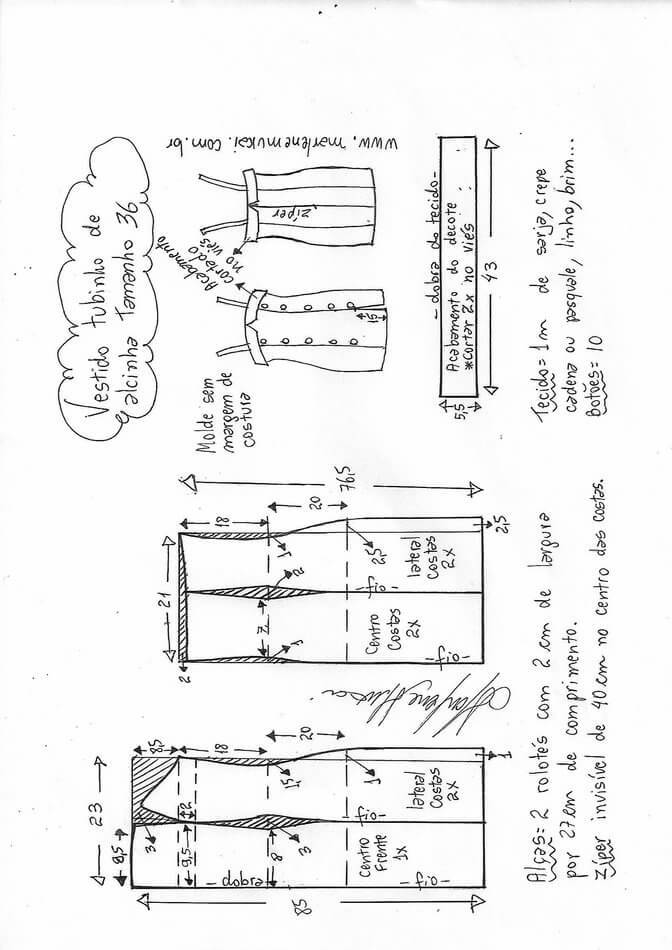 Vestido tubinho de
alcinha Tamanho 36
www.marlenemukai.com.br
Molde sem
margem de
costura
Acabamento
cortado
no viés
zíper
15
- dobra do tecido -
Acabamento do decote
*Cortar 2x no viés
5,5
43
Tecido = 1m de sarja, crepe
cadena ou pasquale, linho, brim...
Botões = 10
23
8,5
8,5
3
18
20
2
9,5
8
3
1,5
1
1
- dobra -
-fio-
-fio-
Centro
Frente
1x
lateral
Costas
2x
85
21
2
18
20
7
1
2
1
2,5
2,5
-fio-
-fio-
Centro
Costas
2x
lateral
Costas
2x
76,5
Alças = 2 rolotês com 2 cm de largura
por 27cm de comprimento.
Zíper invisível de 40cm no centro das costas.